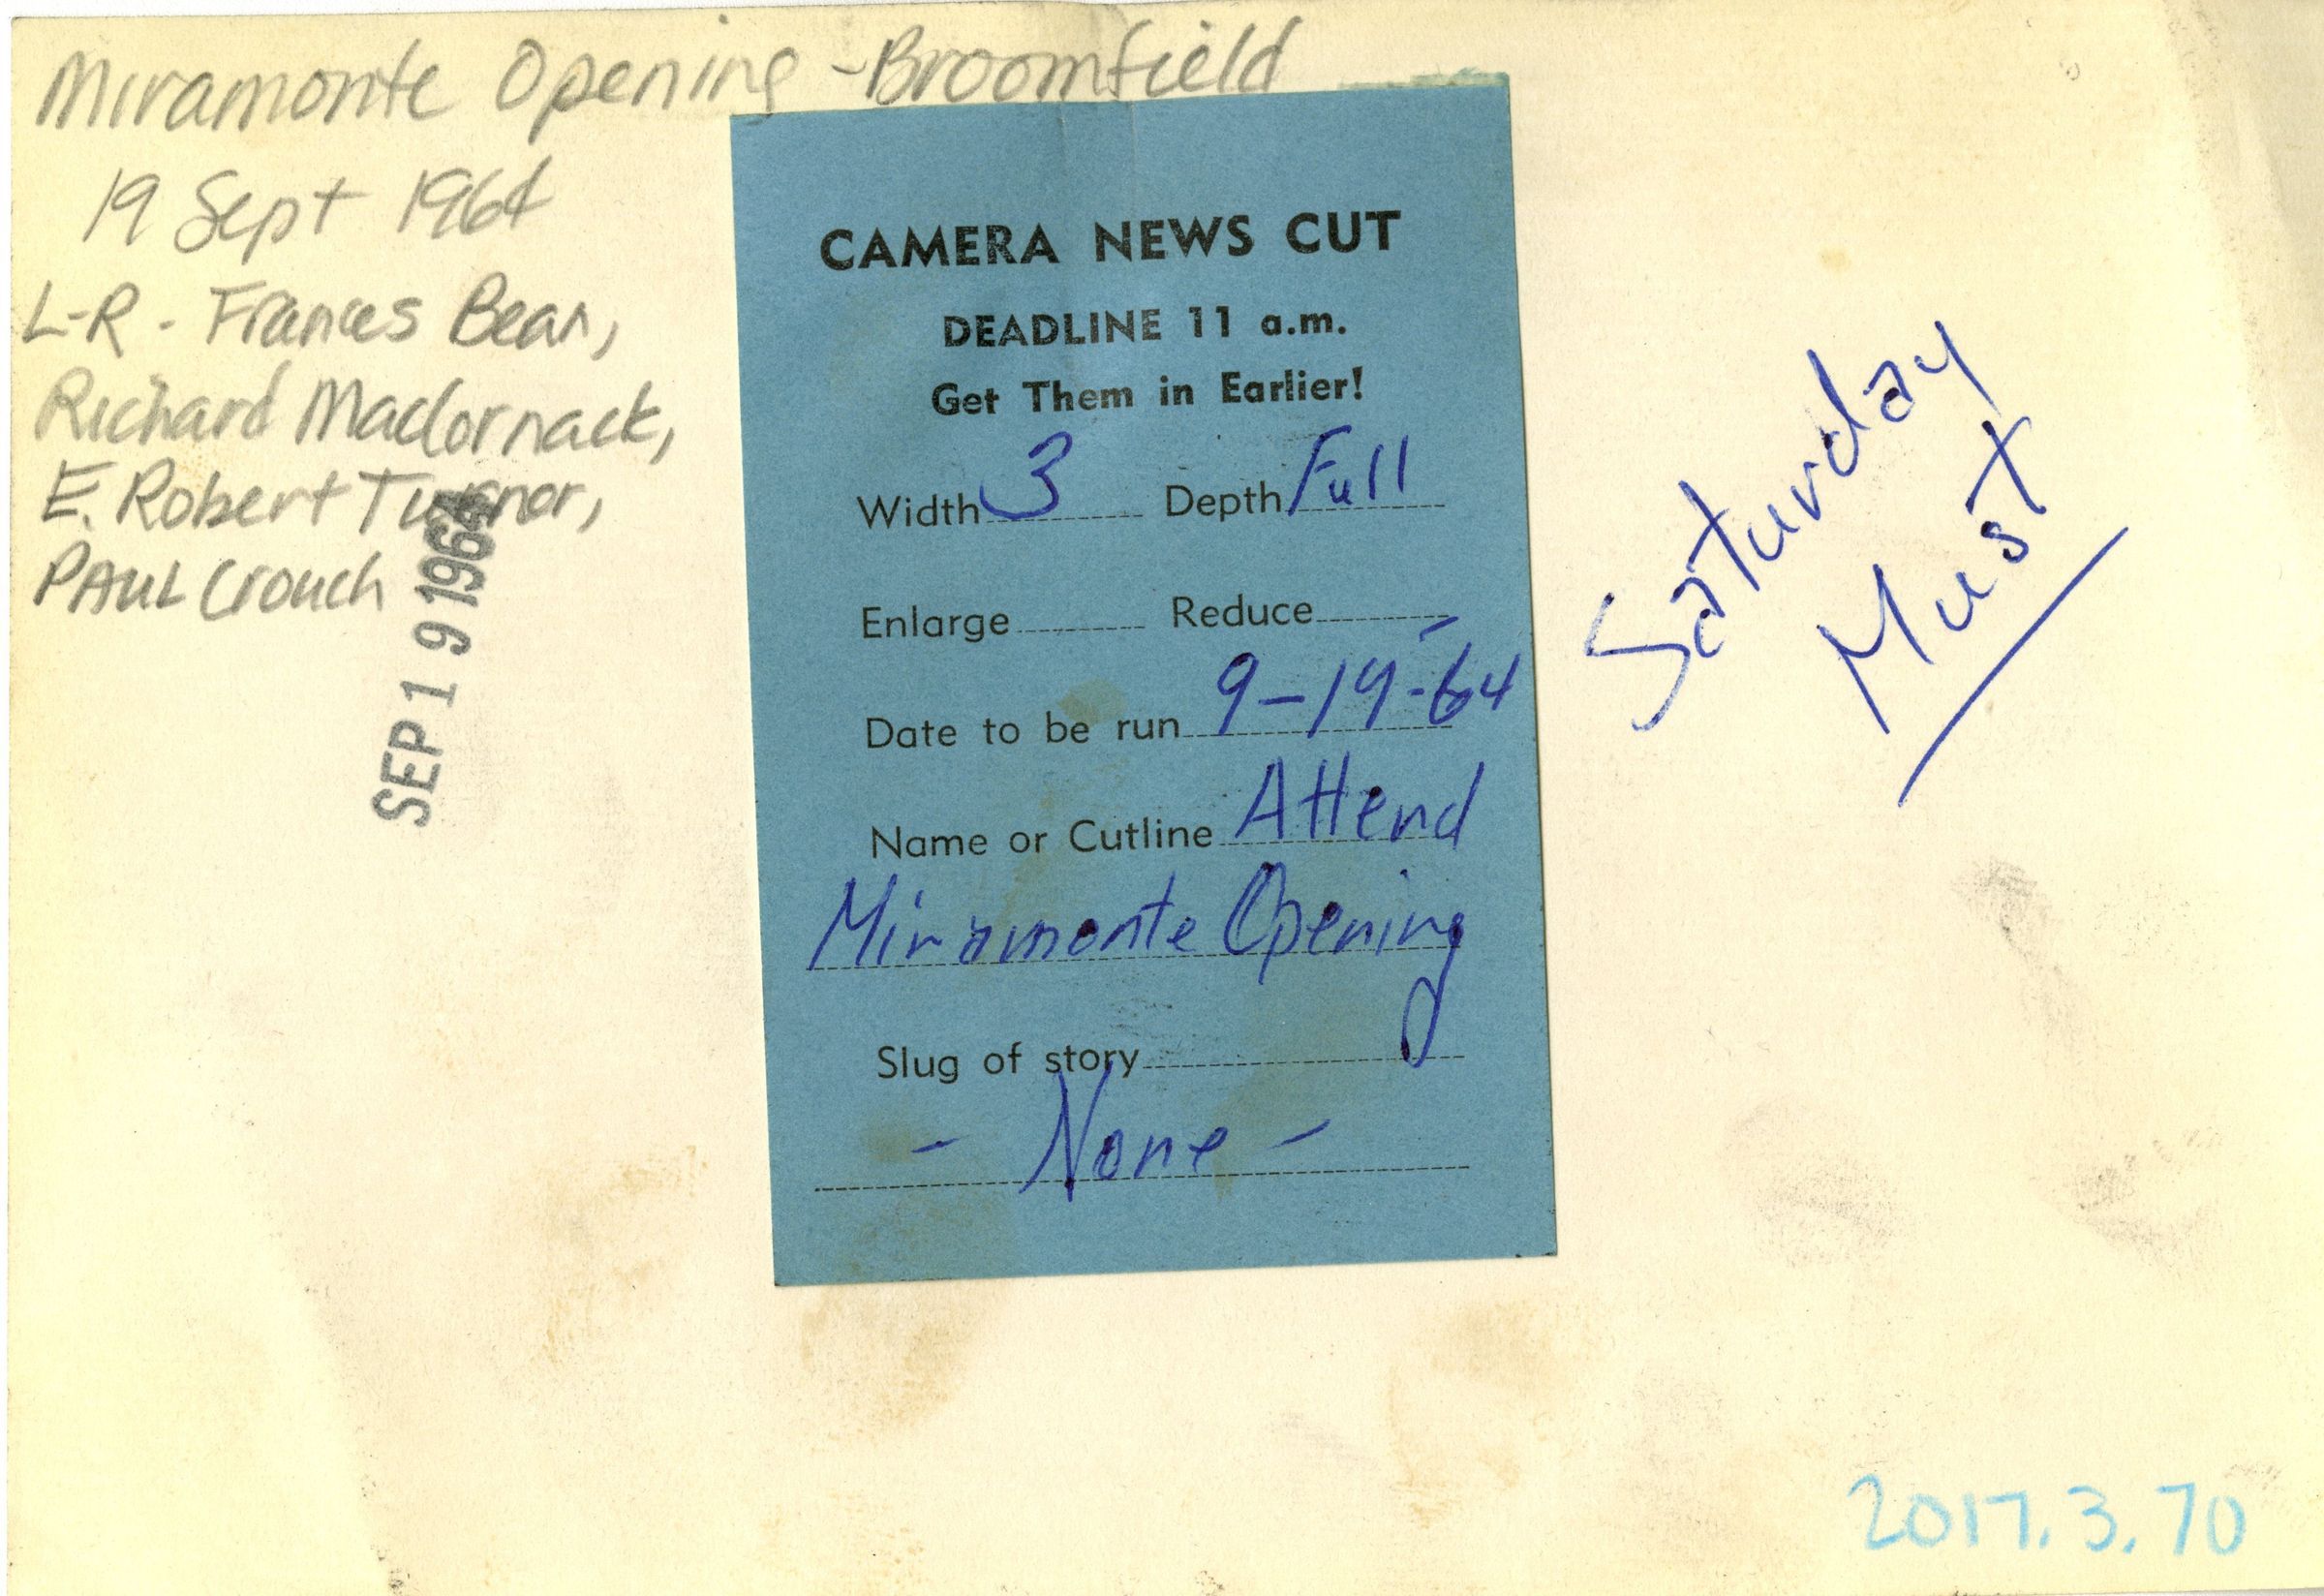 Miramonte Opening - Broomfield
19 Sept 1964
L-R - Frances Bear,
Richard MacCornack,
E. Robert Turner,
PAUL Crouch
SEP 19 1964
CAMERA NEWS CUT
DEADLINE 11 a.m.
Get Them in Earlier!
Width 3 Depth Full
Enlarge Reduce
Date to be run 9-19-64
Name or Cutline Attend
Miramonte Opening
Slug of story
- None -
Saturday
Must
2017.3.70